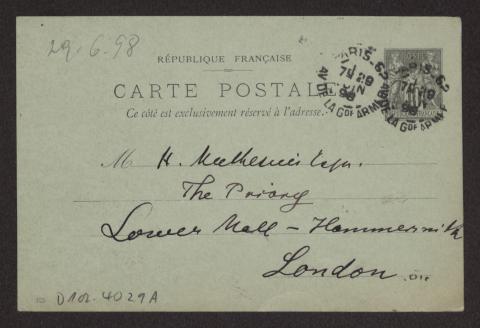 29.6.98
RÉPUBLIQUE FRANÇAISE
CARTE POSTALE
Ce côté est exclusivement réservé à l'adresse.
PARIS_62
7E 29
JUIN
98
AV. DE LA GDE ARMÉE
PARIS_62
7E 29
JUIN
98
AV. DE LA GDE ARMÉE
M H. Muthesius Esqu.
The Priory
Lower Mall – Hammersmith
London
D102-4029A